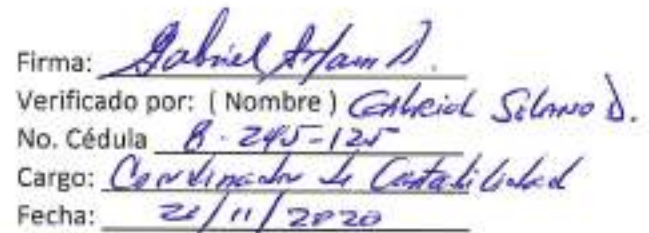 Firma: Gabriel
Verificado por: ( Nombre ) Gabriel Solano D.
No. Cédula 8-245-125
Cargo: Coordinador de Contabilidad
Fecha: /11/2020